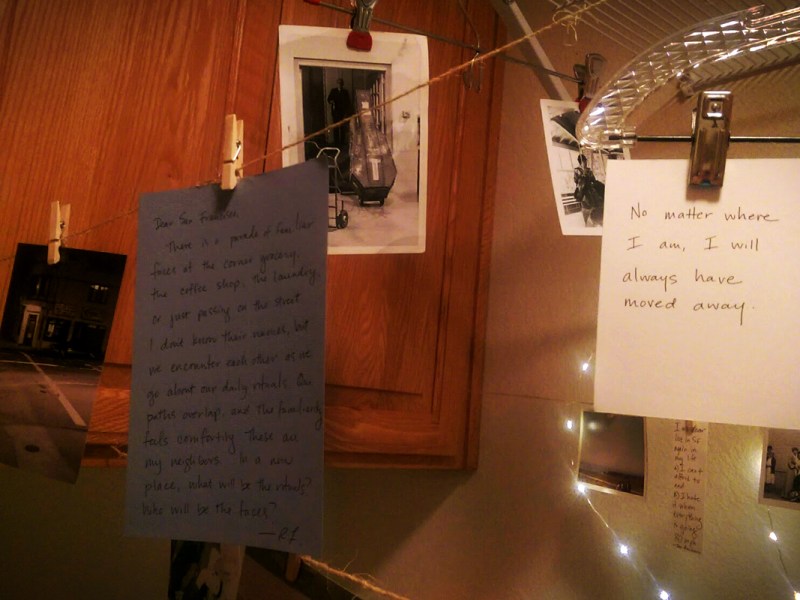 Dear San Francisco,
There is a parade of familiar
faces at the corner grocery,
the coffee shop, the laundry,
or just passing on the street.
I dont know their names, but
we encounter each other as we
go about our daily rituals. Our
paths overlap, and the familiarity
feels comforting. These are
my neighbors. In a new
place, what will be the rituals?
Who will be the faces?
—RF
No matter where
I am, I will
always have
moved away.
my life